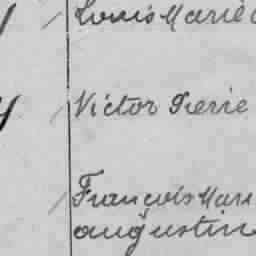 Louis Marie
Victor Pierre
François Marie
augustin